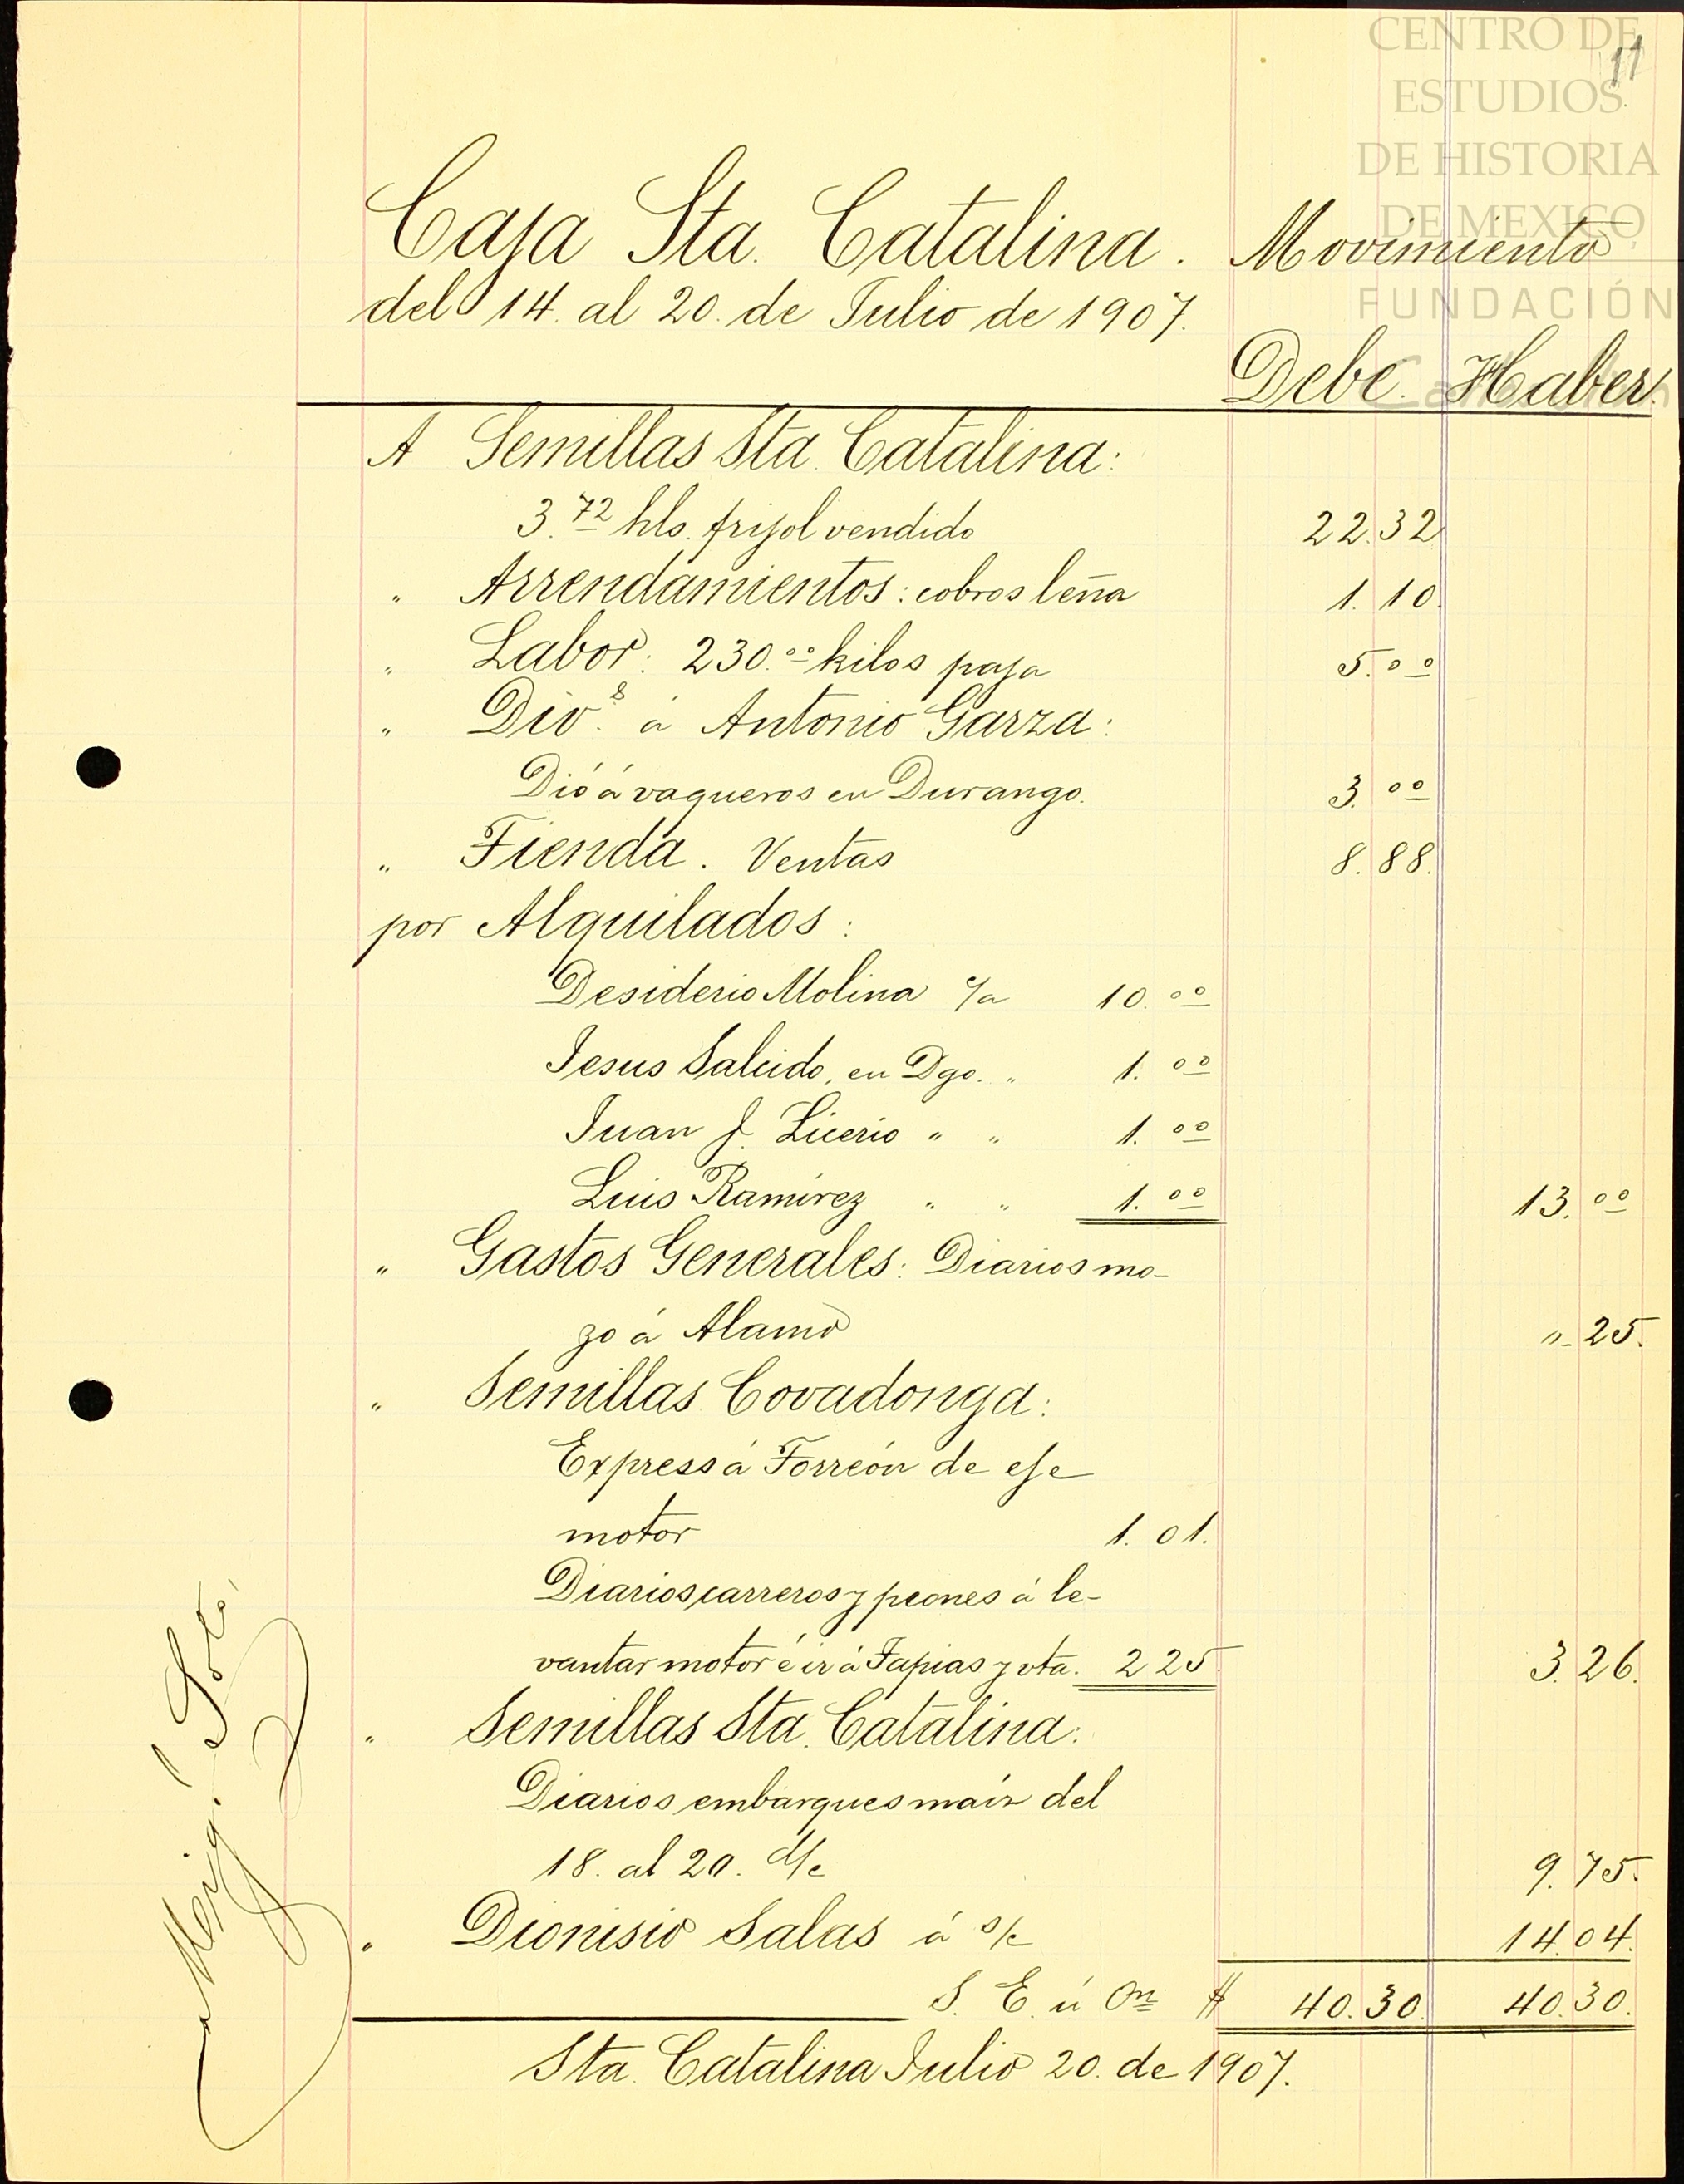 CENTRO DE
ESTUDIOS
DE HISTORIA
DE MEXICO
FUNDACIÓN
11
Caja Sta. Catalina. Movimiento
del 14. al 20. de Julio de 1907.
Debe. Haber.
A Semillas Sta. Catalina:
3.72 hls. frijol vendido 22.32
" Arrendamientos: cobros leña 1.10.
" Labor: 230.00 kilos paja 5.00
" Div.s á Antonio Garza:
Dió á vaqueros en Durango. 3.00
" Tienda. Ventas 8.88.
por Alquilados:
Desiderio Molina c/a 10.00
Jesus Salcido, en Dgo. " 1.00
Juan J. Licerio " " 1.00
Luis Ramírez " " 1.00 13.00
" Gastos Generales: Diarios mo-
zo á Alamo "-25.
" Semillas Covadonga:
Express á Torreón de eje
motor 1.01.
Diarios carreros y peones á le-
vantar motor é ir á Tapias y vta. 2 25 3.26.
" Semillas Sta. Catalina:
Diarios embarques maíz del
18. al 20. d/c 9.75.
" Dionisio Salas á s/c 14.04.
S. E. ú On $ 40.30 40.30.
Sta. Catalina Julio 20. de 1907.